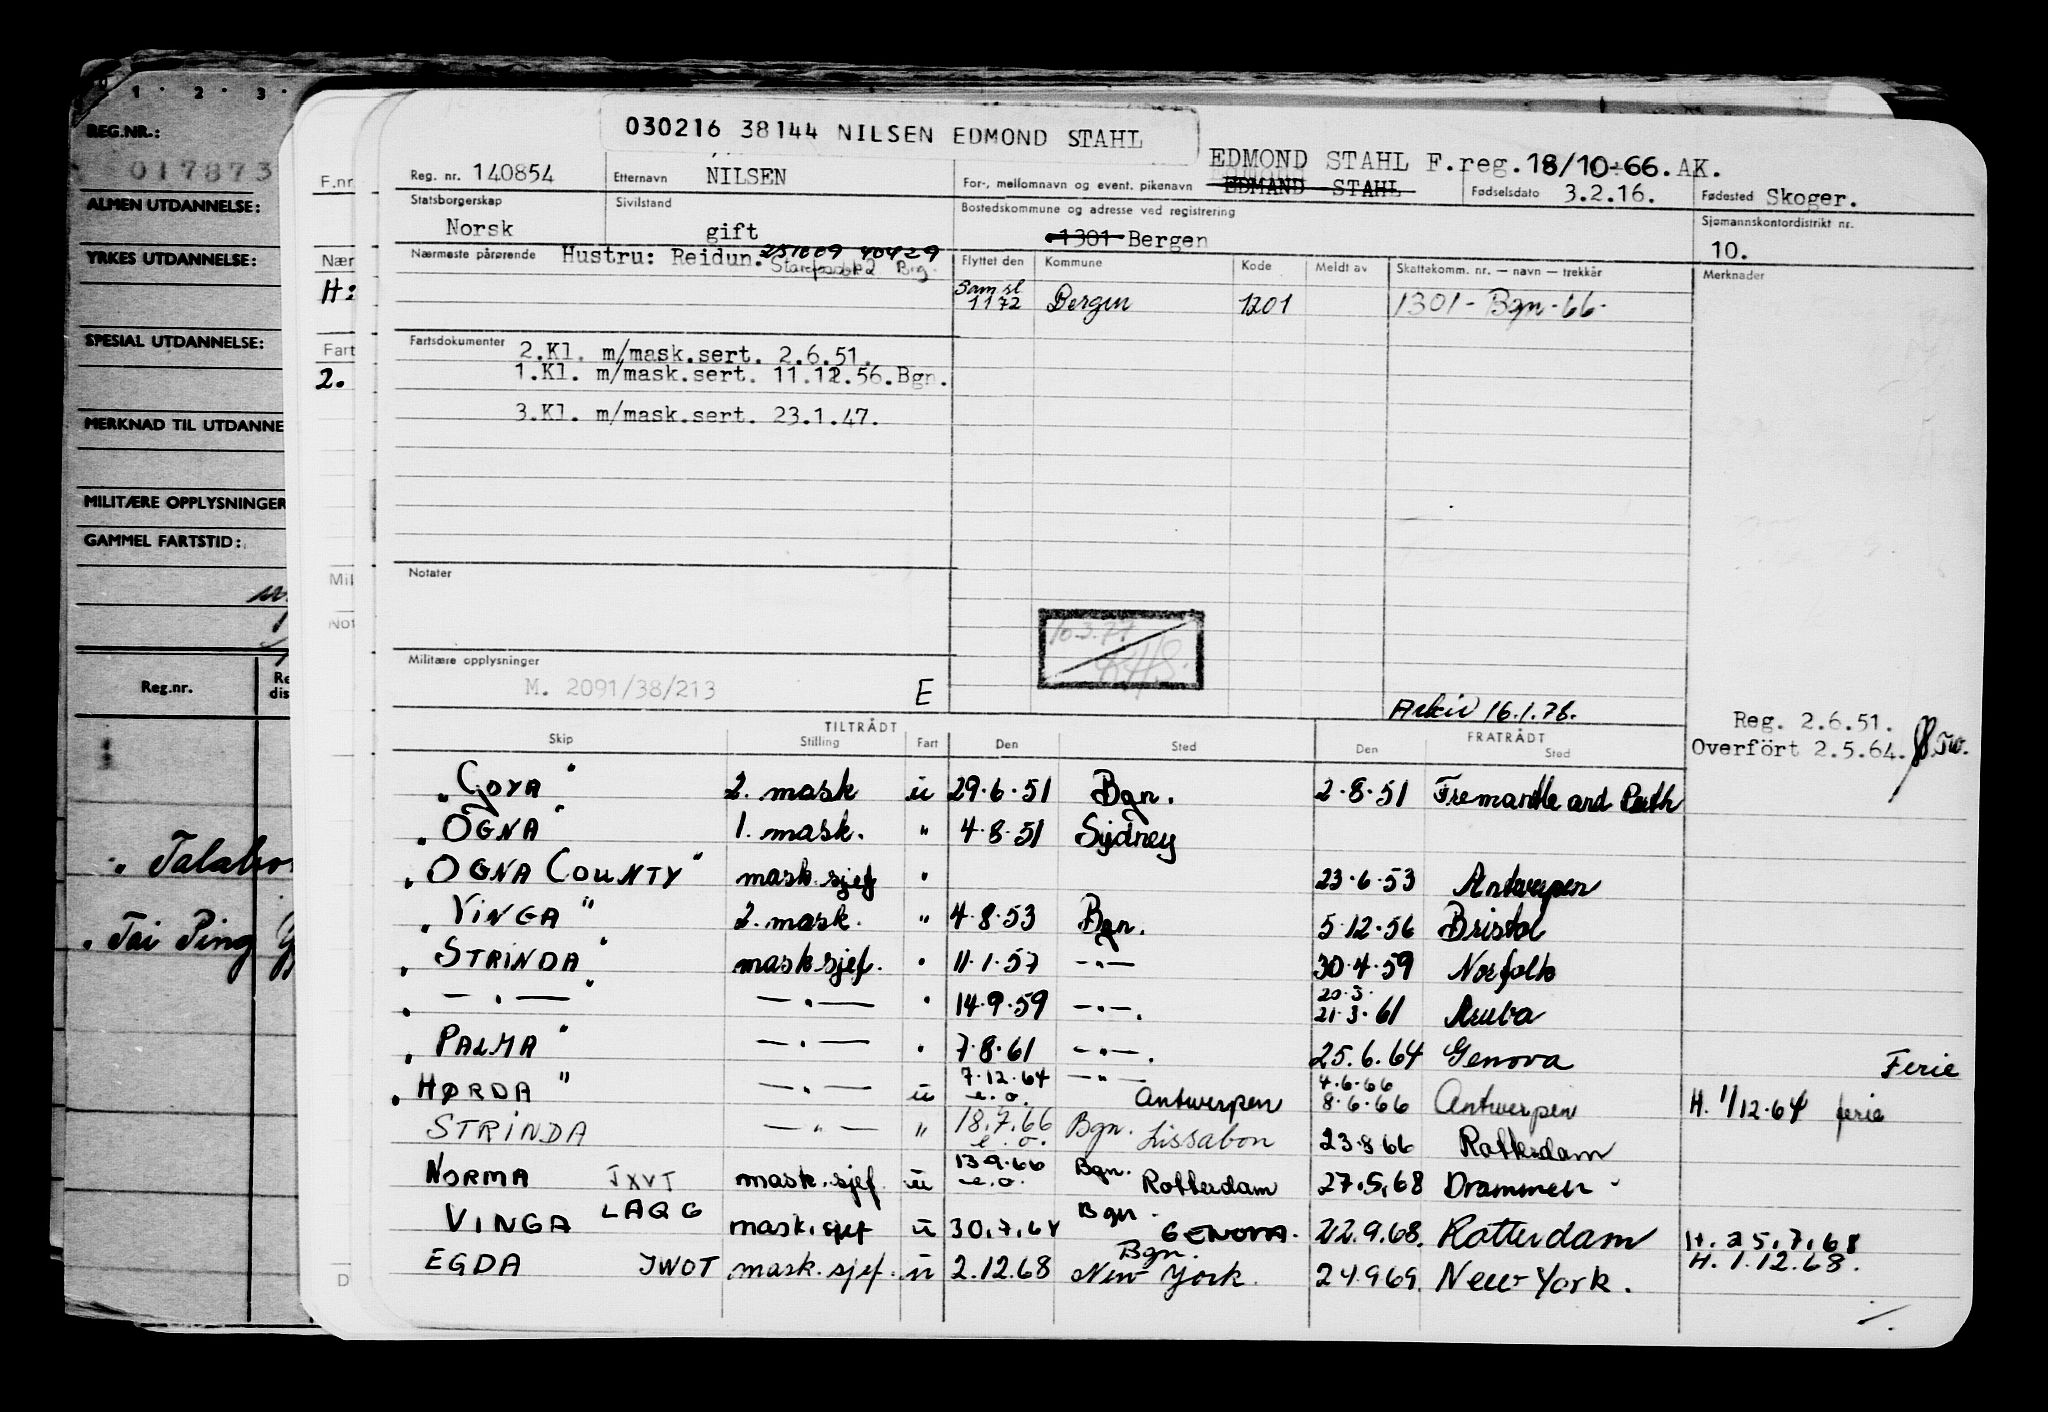 1 · 2 · 3 ·
REG.NR.:
017873
ALMEN UTDANNELSE:
YRKES UTDANNELSE:
SPESIAL UTDANNELSE:
MERKNAD TIL UTDANNE
MILITÆRE OPPLYSNINGER
GAMMEL FARTSTID:
Reg.nr.
Re
dis
„ Tai Ping
F.nr
Nær
H:
Fart
2.
Mil
Not
D
030216 38144 NILSEN EDMOND STAHL
EDMOND STAHL F.reg.18/10-66.AK.
Reg. nr. 140854 Etternavn NILSEN For-, mellomnavn og event. pikenavn EDMAND STAHL Fødselsdato 3.2.16. Fødested Skoger.
Statsborgerskap Norsk Sivilstand gift Bostedskommune og adresse ved registrering 1301 Bergen Sjømannskontordistrikt nr. 10.
Nærmeste pårørende Hustru: Reidun. 251009 40429
Flyttet den Kommune Kode Meldt av Skattekomm. nr. — navn — trekkår Merknader
Sam sl
1172 Bergen 1201 1301 - Bgn - 66 -
Fartsdokumenter 2.Kl. m/mask.sert. 2.6.51.
1.Kl. m/mask.sert. 11.12.56.Bgn.
3.Kl. m/mask.sert. 23.1.47.
Notater
10.3.77
Militære opplysninger
M. 2091/38/213 E
Arkiv 16.1.78.
Reg. 2.6.51.
Overfört 2.5.64. Tw.
TILTRÅDT FRATRÅDT
Skip Stilling Fart Den Sted Den Sted
„GOYA" 2. mask u 29.6.51 Bgn. 2.8.51 Fremantle and Perth
„OGNA" 1. mask. " 4.8.51 Sydney
„OGNA COUNTY" mask.sjef " 23.6.53 Antwerpen
„VINGA" 2. mask. " 4.8.53 Bgn. 5.12.56 Bristol
„STRINDA" mask.sjef. " 11.1.57 —"— 30.4.59 Norfolk
„—"—" —"— " 14.9.59 —"—. 20.3.
21.3.61 Aruba
„PALMA" —"— " 7.8.61 —"—. 25.6.64 Genova Ferie
„HØRDA" —"— u 7.12.64 e.o. —"— Antwerpen 4.6.66
8.6.66 Antwerpen H. 1/12.64 ferie
STRINDA —"— " 18.7.66 e.o. Bgn. Lissabon 23.8.66 Rotterdam
NORMA JXVT mask.sjef u 13.9.66 e.o. Bgn. Rotterdam 27.5.68 Drammen
VINGA LAQG mask.sjef u 30.7.68 Bgn. GENOVA. 22.9.68. Rotterdam H. 25.7.68
EGDA JWOT mask.sjef. u 2.12.68 Bgn. New York. 24.9.69. New York. H. 1.12.68.